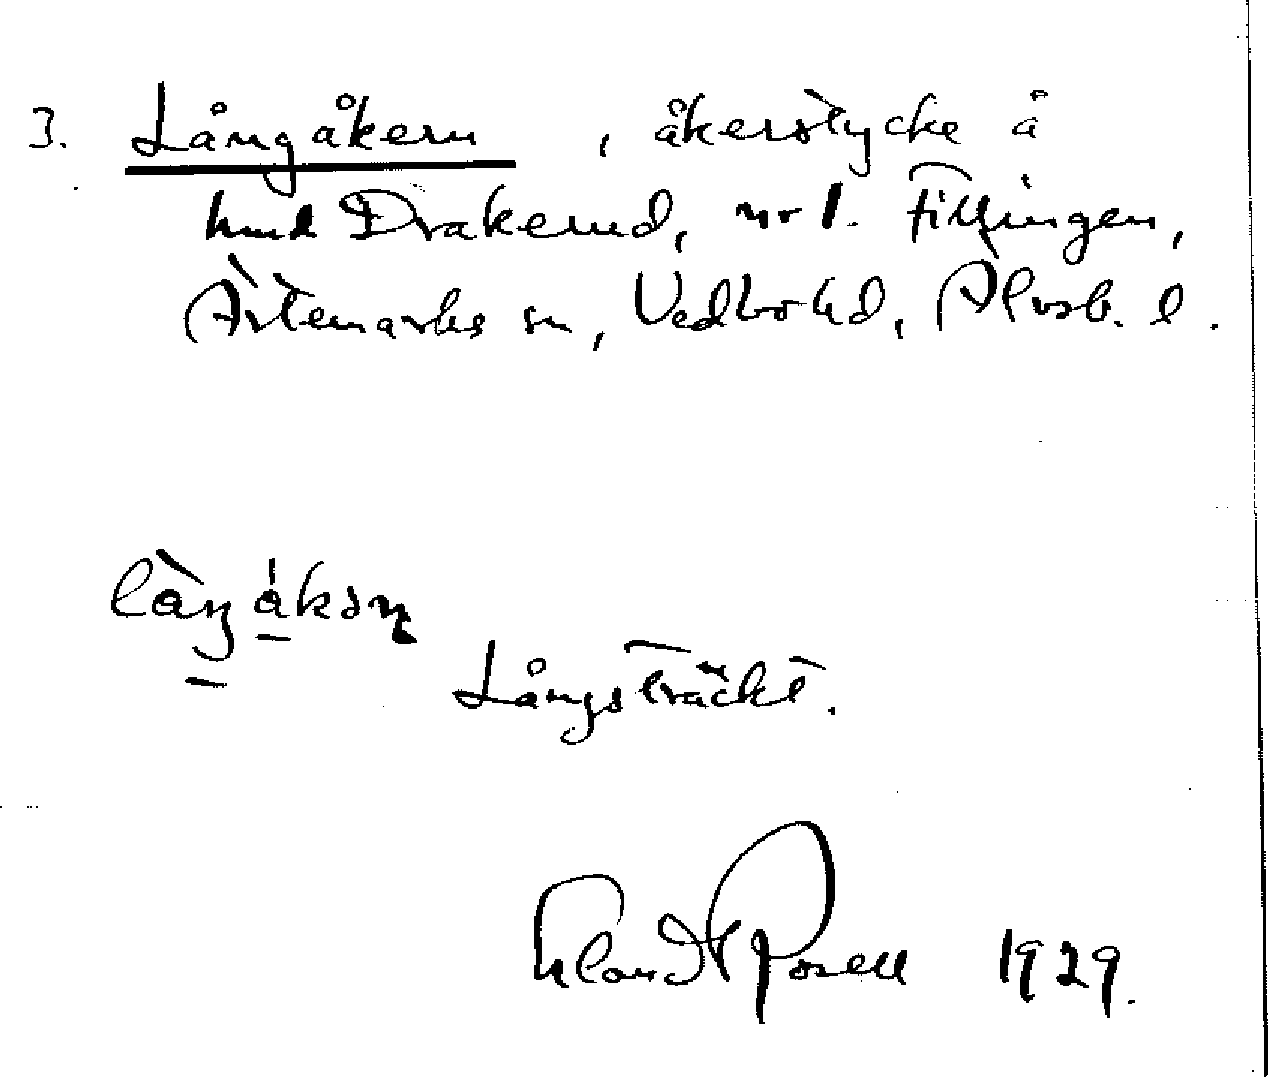 3. Långåkern, åkerstycke å
hmd Drakerud, nr 1. Fillingen,
Ärtemarks sn, Vedbo hd, Älvsb. l.
Långsträckt.
1929.